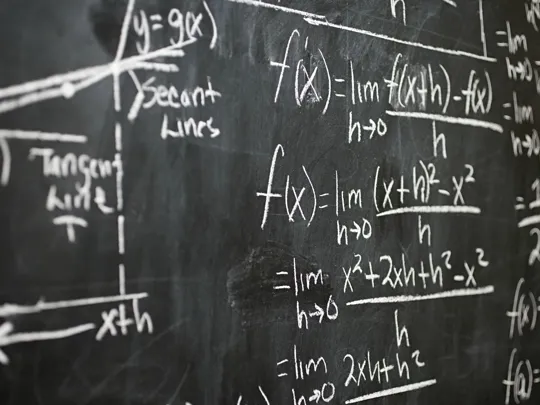 h
y=g(x)
Secant
Lines
Tangent
Line
T
x+h
f'(x)=lim f(x+h)-f(x)
h→0 h
f(x)=lim (x+h)²-x²
h→0 h
=lim x²+2xh+h²-x²
h→0 h
=lim 2xh+h²
h→0
=lim
h→0
=lim
h→0
=1
2
f(x)
f(a)=